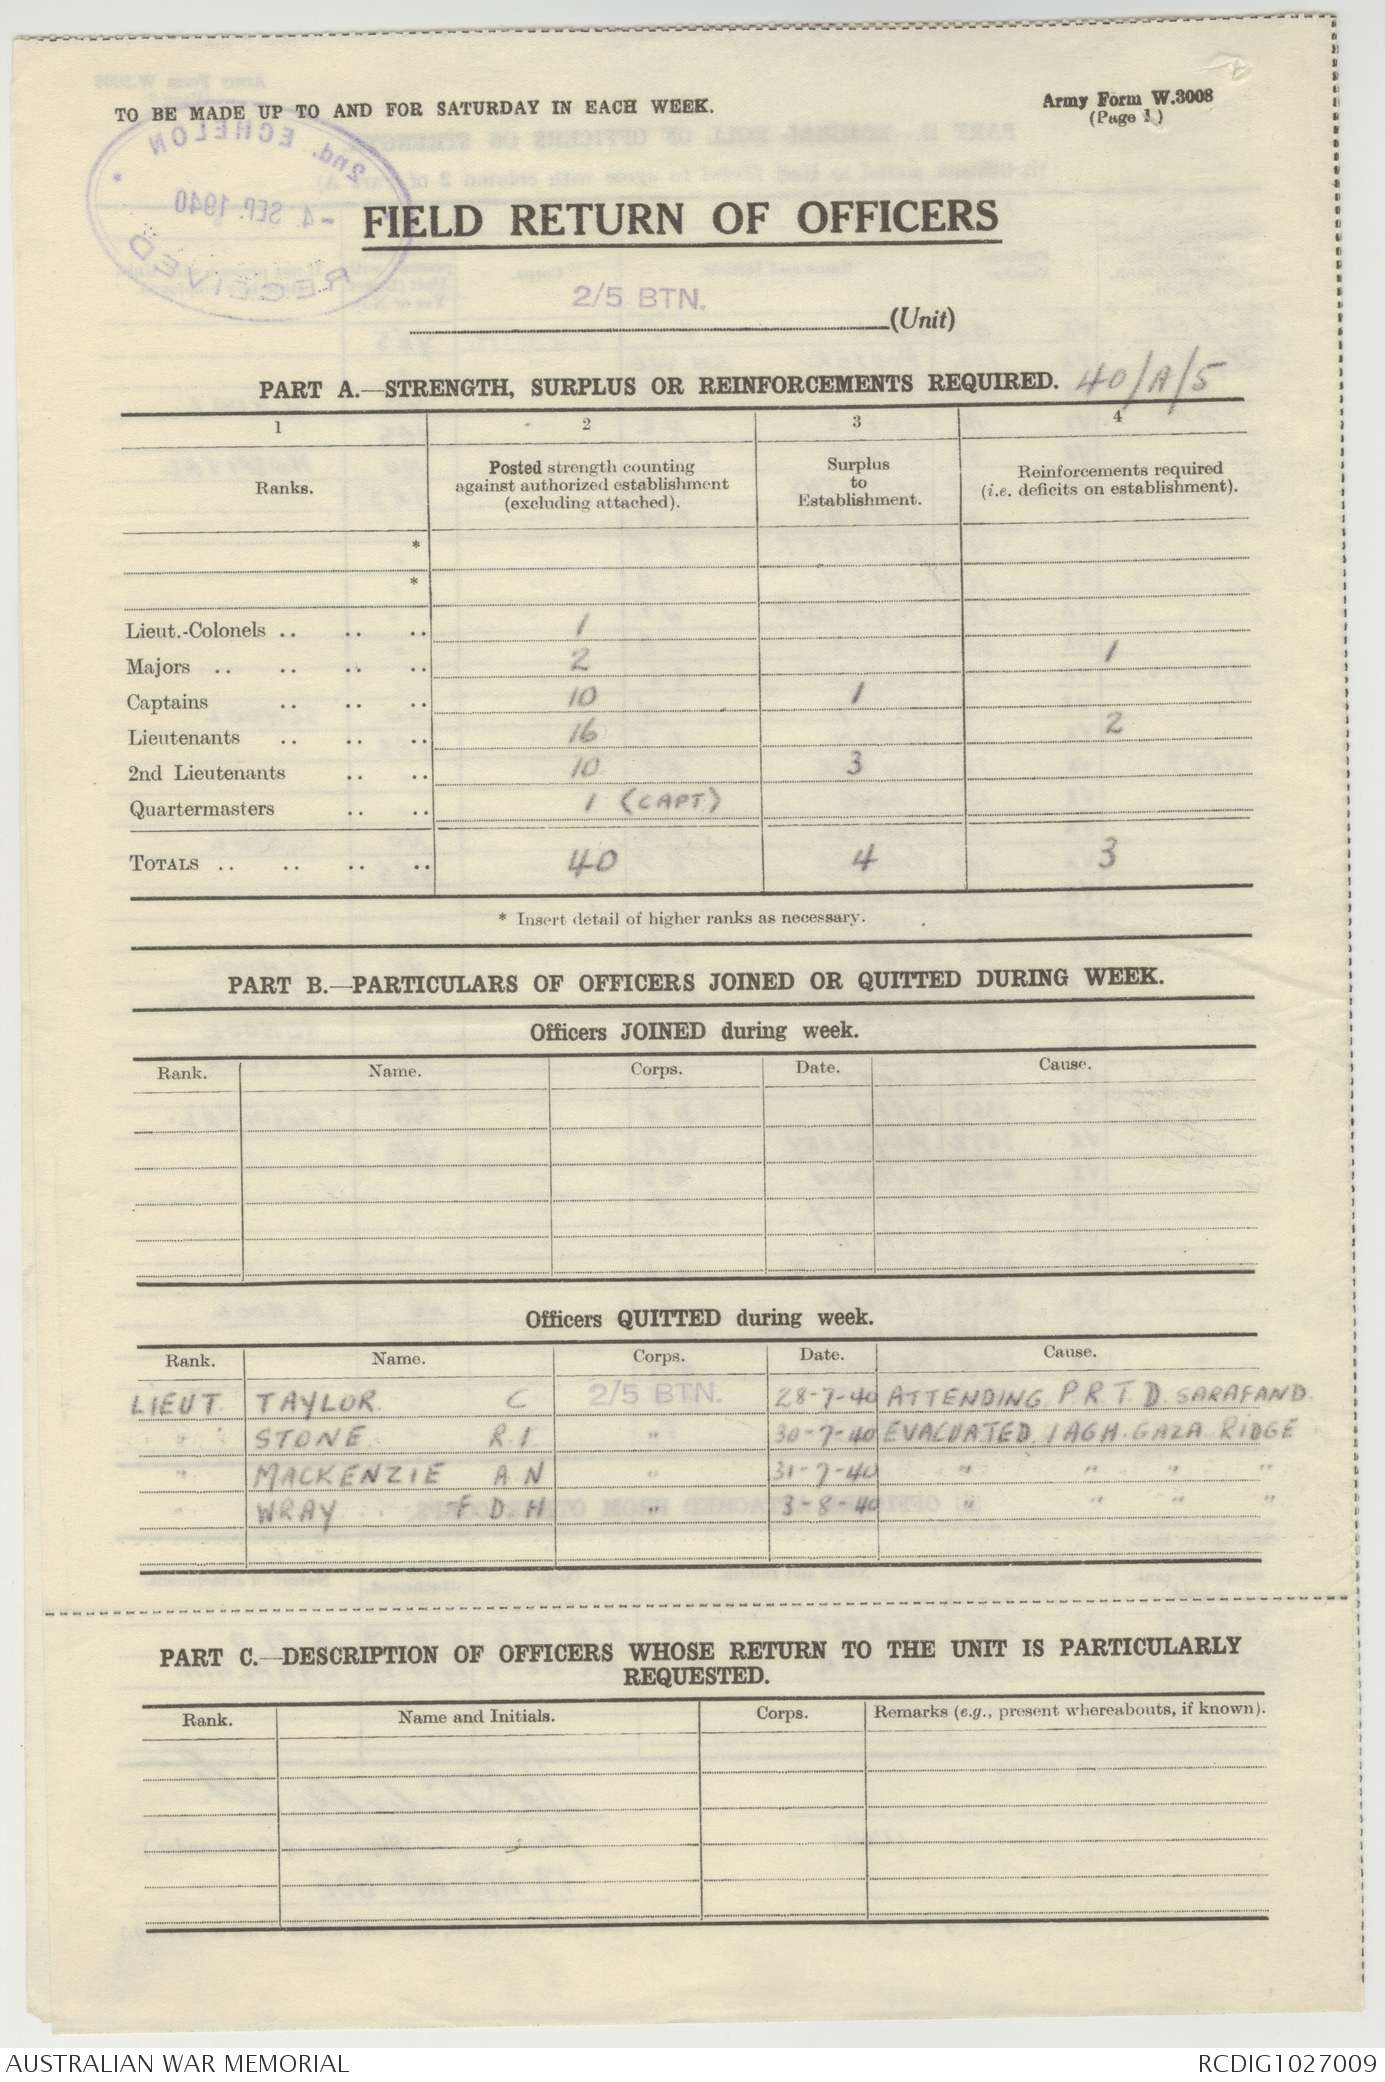 TO BE MADE UP TO AND FOR SATURDAY IN EACH WEEK.
Army Form W.3008
(Page 1)
2nd. ECHELON
-4 SEP. 1940
RECEIVED
FIELD RETURN OF OFFICERS
2/5 BTN.
(Unit)
PART A.—STRENGTH, SURPLUS OR REINFORCEMENTS REQUIRED. 40/A/5
1 2 3 4
Ranks. Posted strength counting against authorized establishment (excluding attached). Surplus to Establishment. Reinforcements required (i.e. deficits on establishment).
*
*
Lieut.-Colonels .. .. .. 1
Majors .. .. .. .. 2 1
Captains .. .. .. 10 1
Lieutenants .. .. .. 16 2
2nd Lieutenants .. .. 10 3
Quartermasters .. .. 1 (CAPT)
TOTALS .. .. .. .. 40 4 3
* Insert detail of higher ranks as necessary.
PART B.—PARTICULARS OF OFFICERS JOINED OR QUITTED DURING WEEK.
Officers JOINED during week.
Rank. Name. Corps. Date. Cause.
Officers QUITTED during week.
Rank. Name. Corps. Date. Cause.
LIEUT. TAYLOR. C 2/5 BTN. 28-7-40 ATTENDING P.R.T.D. SARAFAND.
" STONE. R.I " 30-7-40 EVACUATED 1 AGH. GAZA RIDGE
" MACKENZIE A N " 31-7-40 " " " "
" WRAY F D. H " 3-8-40 " " " "
PART C.—DESCRIPTION OF OFFICERS WHOSE RETURN TO THE UNIT IS PARTICULARLY
REQUESTED.
Rank. Name and Initials. Corps. Remarks (e.g., present whereabouts, if known).
AUSTRALIAN WAR MEMORIAL
RCDIG1027009